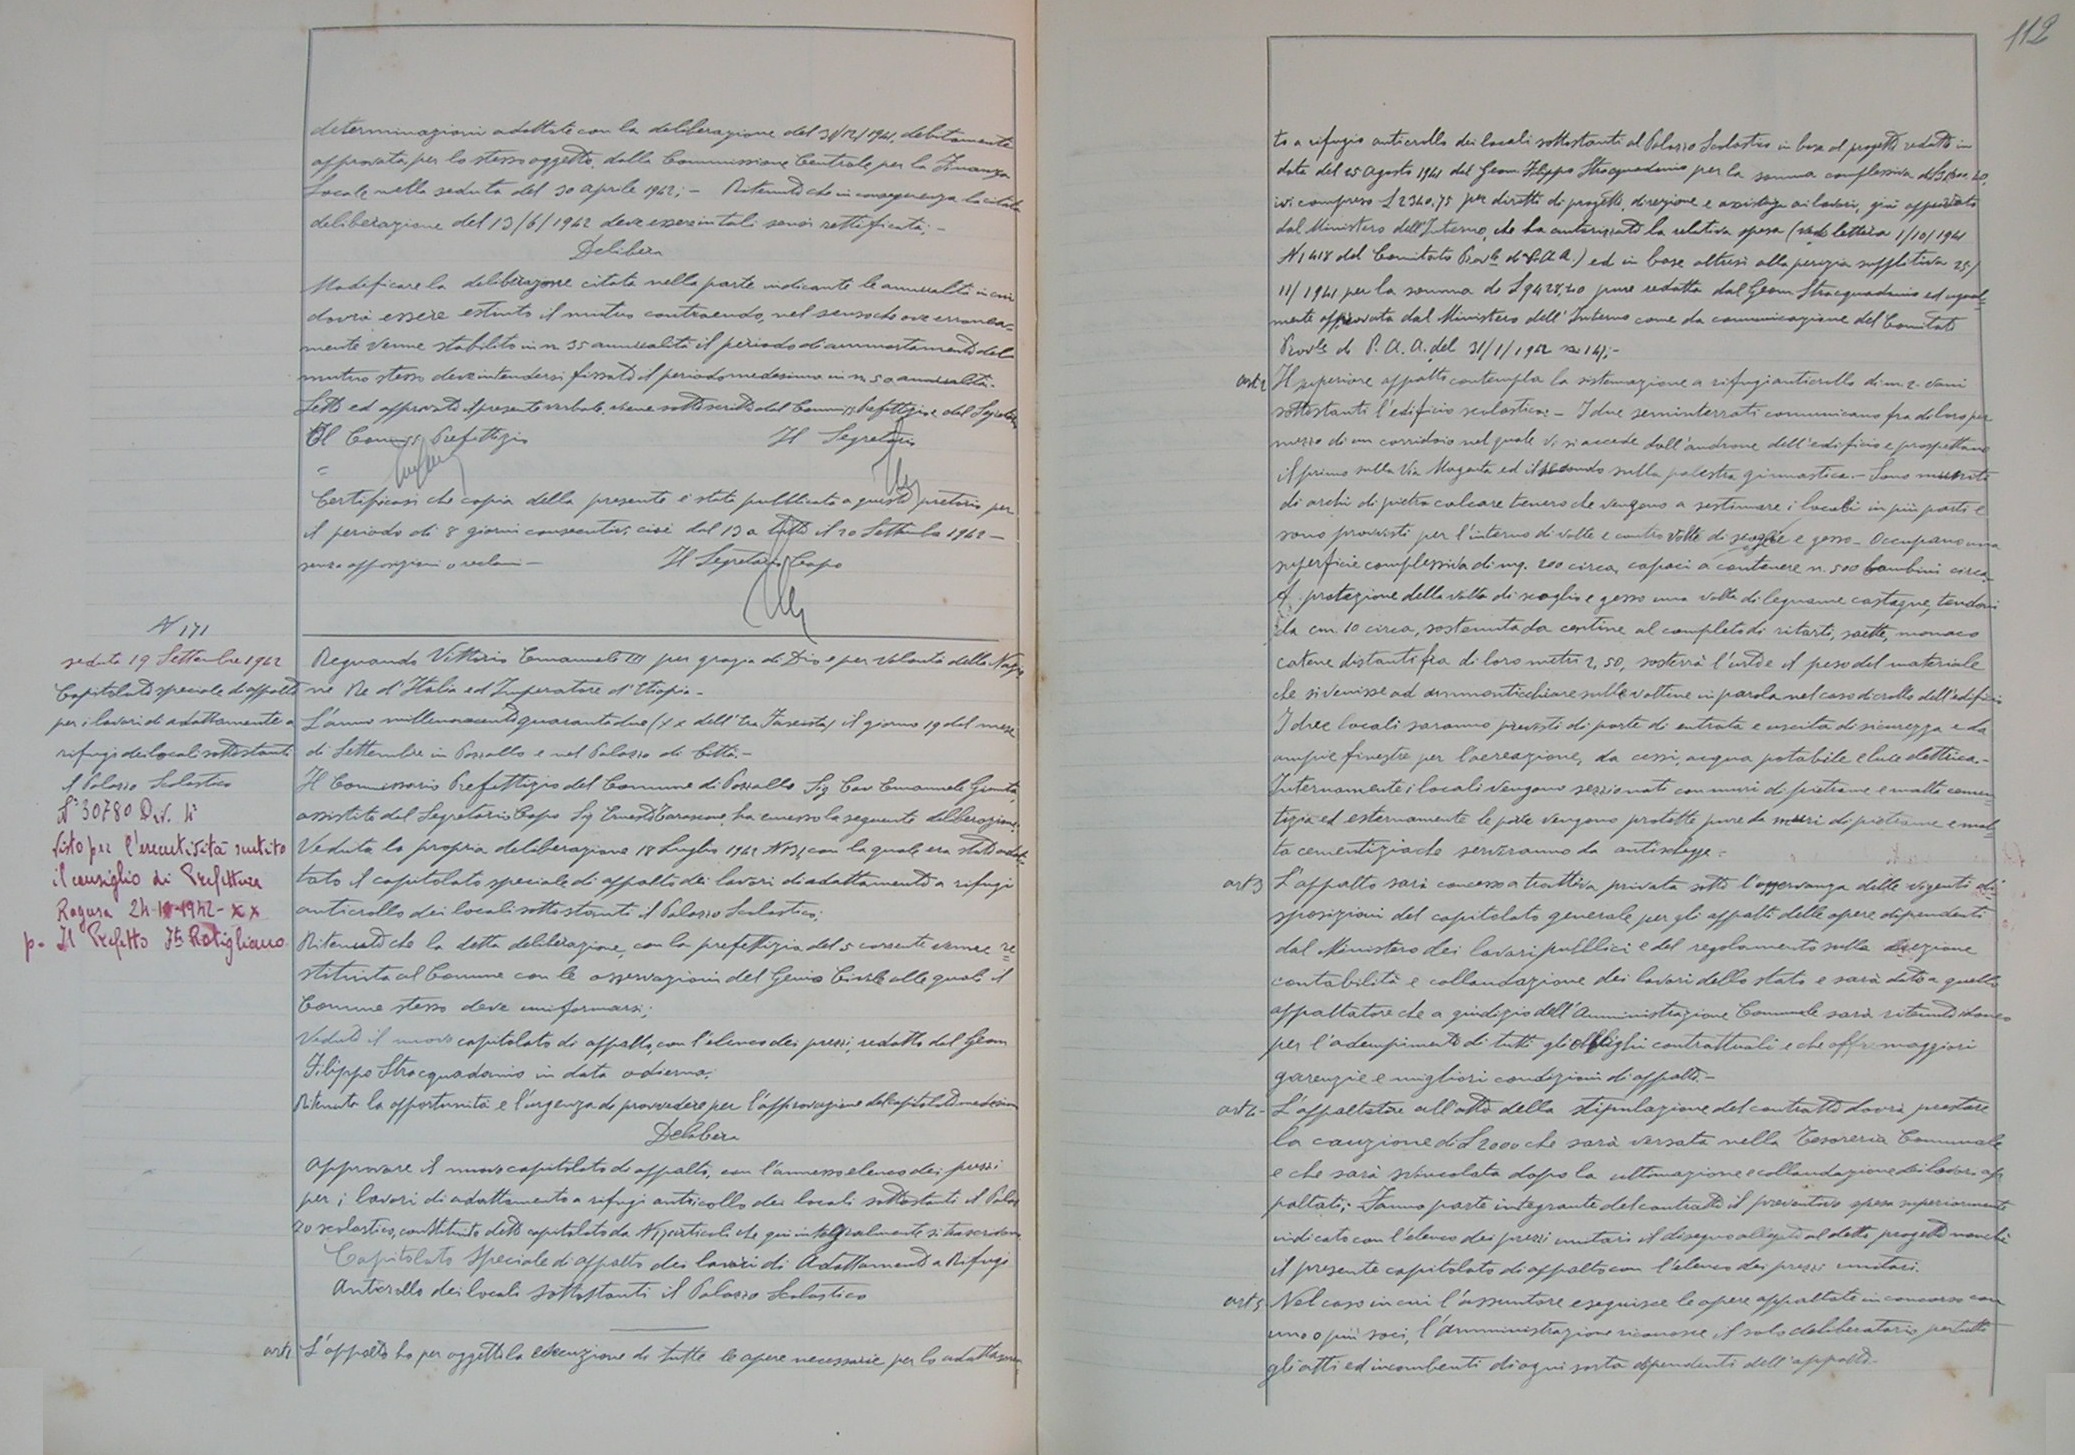 determinazioni adottate con la deliberazione del 31/12/1941, debitamente
approvata, per lo stesso oggetto, dalla Commissione Centrale per la Finanza
Locale nella seduta del 30 aprile 1942; - Ritenuto che in conseguenza la citata
deliberazione del 13/6/1942 deve essere in tali sensi rettificata; -
Delibera
Modificare la deliberazione citata nella parte indicante le annualità in cui
dovrà essere estinto il mutuo contraendo, nel senso che ove erronea-
mente venne stabilito in n. 35 annualità il periodo di ammortamento del
mutuo stesso deve intendersi fissato il periodo medesimo in n. 50 annualità.
Letto ed approvato il presente verbale, viene sottoscritto dal Commiss. Prefettizio e dal Segretario
Il Commiss Prefettizio Il Segretario
Certificasi che copia della presente è stata pubblicata a questo pretorio per
il periodo di 8 giorni consecutivi, cioè dal 13 a tutto il 20 Settembre 1942 -
senza opposizioni o reclami - Il Segretario Capo
N 171
seduta 19 Settembre 1942
Capitolato speciale di appalto
per i lavori di adattamento a
rifugi dei locali sottostanti
il Palazzo Scolastico
N° 30780 Div. 4ª
Visto per l'esecutività sentito
il consiglio di Prefettura
Ragusa 24-10-1942-XX
p. Il Prefetto Fto Rotigliano
Regnando Vittorio Emanuele III per grazia di Dio e per Volontà della Nazio
ne Re d'Italia ed Imperatore d'Etiopia -
L'anno millenovecentoquarantadue (XX dell'Era Fascista) il giorno 19 del mese
di Settembre in Pozzallo e nel Palazzo di Città -
Il Commissario Prefettizio del Comune di Pozzallo Sig Cav Emanuele Giunta,
assistito dal Segretario Capo Sig Ernesto Tarascone, ha emesso la seguente deliberazione:
Veduta la propria deliberazione 18 Luglio 1942 con la quale era stato adot-
tato il capitolato speciale di appalto dei lavori di adattamento a rifugi
anticrollo dei locali sottostanti il Palazzo Scolastico;
Ritenuto che la detta deliberazione, con la prefettizia del 5 corrente venne re=
stituita al Comune con le osservazioni del Genio Civile alle quali il
Comune stesso deve uniformarsi;
Veduto il nuovo capitolato di appalto, con l'elenco dei prezzi, redatto dal Geom
Filippo Stracquadanio in data odierna;
Ritenuta la opportunità e l'urgenza di provvedere per l'approvazione del capitolato medesimo
Delibera
Approvare il nuovo capitolato di appalto, con l'annesso elenco dei prezzi
per i lavori di adattamento a rifugi anticrollo dei locali sottostanti il Palaz
zo scolastico, costituito detto capitolato da articoli che qui integralmente si trascrivono
Capitolato Speciale di appalto dei lavori di Adattamento a Rifugi
Anticrollo dei locali sottostanti il Palazzo Scolastico
art 1 L'appalto ha per oggetto la esecuzione di tutte le opere necessarie per lo adattamen
112
to a rifugio anticrollo dei locali sottostanti al Palazzo Scolastico in base al progetto redatto in
data del 25 Agosto 1941 dal Geom. Filippo Stracquadanio per la somma complessiva di
ivi compreso L 2340,75 per diritti di progetto, direzione e assistenza ai lavori, già approvato
dal Ministero dell'Interno, che ha autorizzato la relativa spesa (vedi lettera 1/10/1941
N 1418 del Comitato Prov.le di P.A.A.) ed in base altresì alla perizia suppletiva 25/
11/1941 per la somma di L 9428,40 pure redatta dal Geom. Stracquadanio ed ugual-
mente approvata dal Ministero dell'Interno come da comunicazione del Comitato
Prov.le di P. A. A. del 31/1/1942 -
art 2 Il superiore appalto contempla la sistemazione a rifugi anticrollo di n. 2 vani
sottostanti l'edificio scolastico - I due seminterrati comunicano fra di loro per
mezzo di un corridoio nel quale vi si accede dall'androne dell'edificio e prospettano
il primo sulla Via Magenta ed il secondo sulla palestra ginnastica. - Sono muniti
di archi di pietra calcare tenero che vengono a sestimare i locali in più parti e
sono provvisti per l'interno di volte e contro volte di scaglie e gesso - Occupano una
superficie complessiva di mq. 200 circa, capaci a contenere n. 500 bambini circa.
A protezione della volta di scaglie e gesso una volta di legname castagne, tendoni
da cm. 10 circa, sostenuta da centine al completo di ritarti, saette, monaco
catene distanti fra di loro metri 2,50, sosterrà l'urto e il peso del materiale
che si venisse ad ammonticchiare sulle voltine in parola nel caso di crollo dell'edificio
I due locali saranno provvisti di porte di entrata e uscita di sicurezza e da
ampie finestre per l'aereazione, da cessi, acqua potabile e luce elettrica. -
Internamente i locali vengono sezionati con muri di pietrame e malta cemen-
tizia ed esternamente le porte vengono protette pure da muri di pietrame e mal
ta cementizia che serviranno da antischegge. -
art 3 L'appalto sarà concesso a trattiva privata sotto l'osservanza delle vigenti di-
sposizioni del capitolato generale per gli appalti delle opere dipendenti
dal Ministero dei lavori pubblici e del regolamento sulla direzione
contabilità e collaudazione dei lavori dello stato e sarà dato a quello
appaltatore che a giudizio dell'Amministrazione Comunale sarà ritenuto idoneo
per l'adempimento di tutti gli obblighi contrattuali e che offre maggiori
garenzie e migliori condizioni di appalto. -
art 4 - L'appaltatore all'atto della stipulazione del contratto dovrà prestare
la cauzione di L 2000 che sarà versata nella Tesoreria Comunale
e che sarà svincolata dopo la ultimazione e collaudazione dei lavori ap
paltati; - Fanno parte integrante del contratto il preventivo spesa superiormente
indicato con l'elenco dei prezzi unitari il disegno allegato al detto progetto nonchè
il presente capitolato di appalto con l'elenco dei prezzi unitari.
art 5 Nel caso in cui l'assuntore eseguisce le opere appaltate in concorso con
uno o più soci, l'amministrazione riconosce il solo deliberatario per tutti
gli atti ed incombenti di ogni sorta dipendenti dell'appalto -